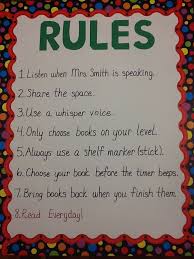 RULES
1. Listen when Mrs. Smith is speaking.
2. Share the space.
3. Use a whisper voice.
4. Only choose books on your level.
5. Always use a shelf marker (stick).
6. Choose your book before the timer beeps.
7. Bring books back when you finish them.
8. Read Everyday!